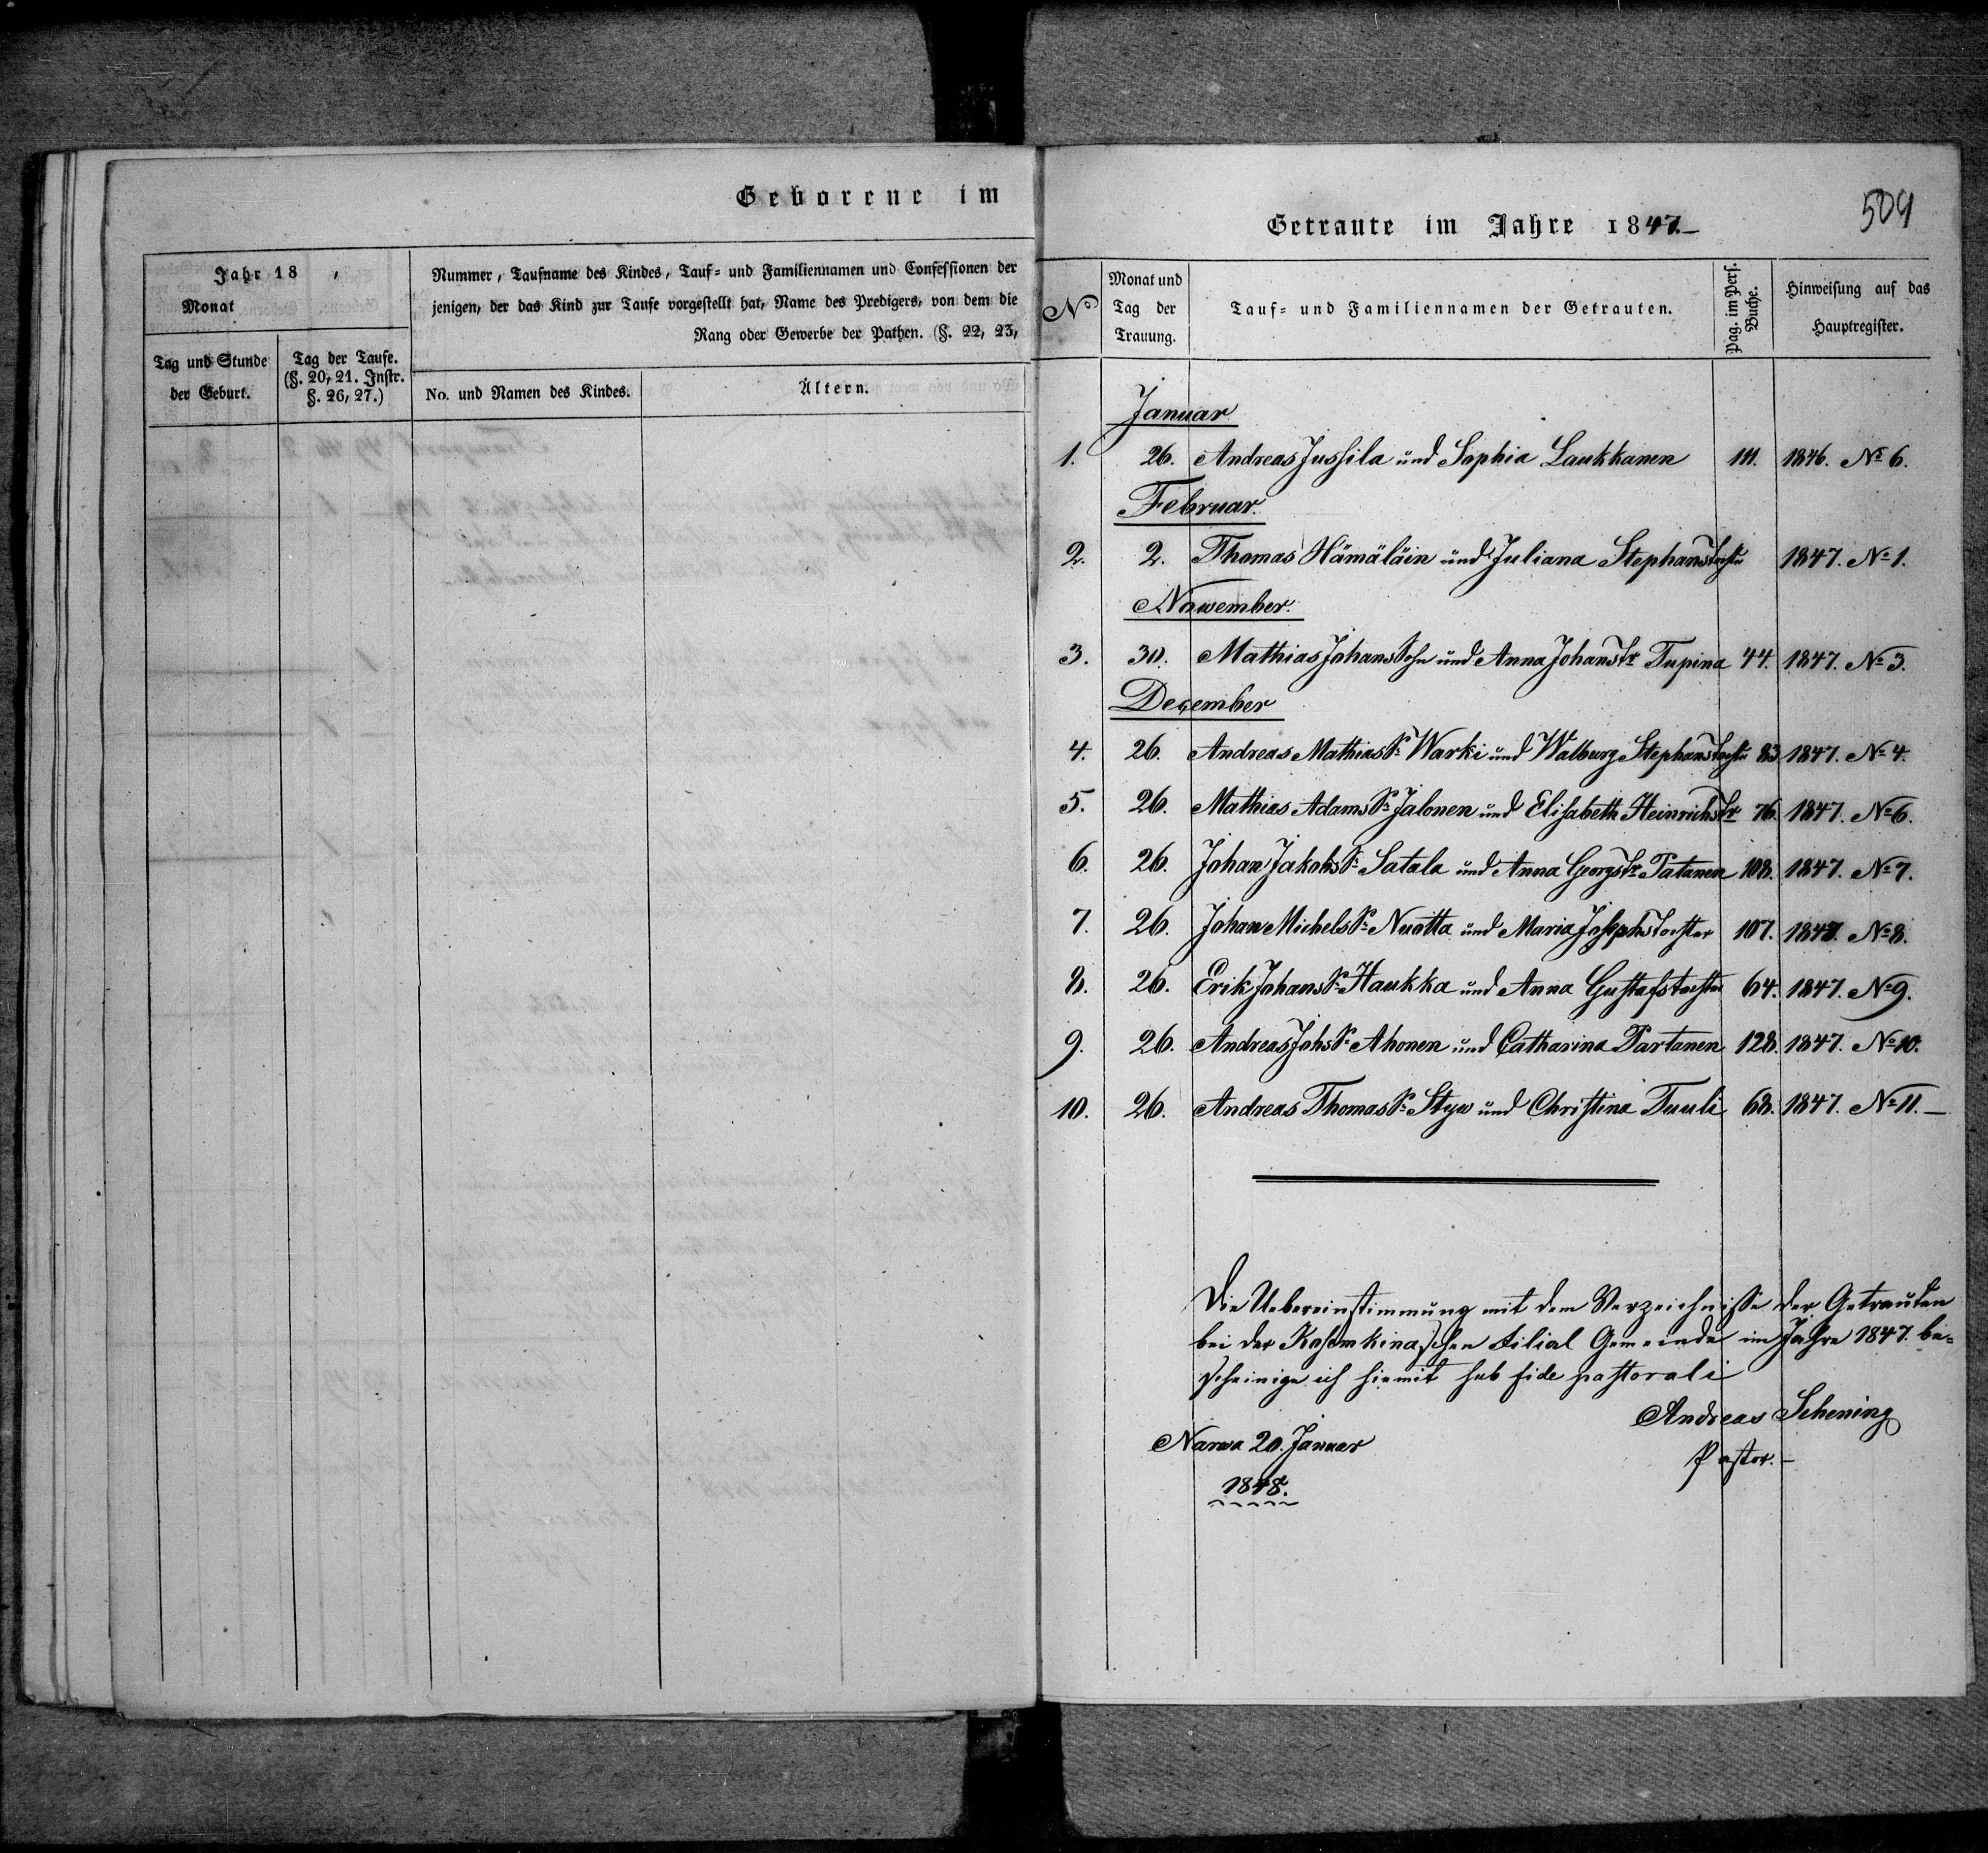 Geborene im
Jahr 18 ,
Monat
Tag und Stunde
der Geburt.
Tag der Taufe.
(§. 20, 21. Instr.
§. 26, 27.)
Nummer, Taufname des Kindes, Tauf- und Familiennamen und Confessionen der
jenigen, der das Kind zur Taufe vorgestellt hat, Name des Predigers, von dem die
Rang oder Gewerbe der Pathen. (§. 22, 23,
No. und Namen des Kindes.
Ältern.
509
Getraute im Jahre 1847.
No
Monat und
Tag der
Trauung.
Tauf- und Familiennamen der Getrauten.
Pag. im Pers.
Buche.
Hinweisung auf das
Hauptregister.
Januar
1. 26. Andreas Jussila und Sophia Laukkanen 111. 1846. No 6.
Februar.
2. 2. Thomas Hämäläin und Juliana Stephanstocht 1847. No 1.
Nowember.
3. 30. Mathias Johans Sohn und Anna Johanstr Tupina 44. 1847. No 3.
December
4. 26. Andreas Mathias S. Warki und Walburg Stephanstocht 83 1847. No 4.
5. 26. Mathias Adams S. Jalonen und Elisabeth Heinrichstr 76. 1847. No 6.
6. 26. Johan Jakobs S. Satala und Anna Georgstr Patanen 108. 1847. No 7.
7. 26. Johan Michels S. Nuotta und Maria Josephstochter 107. 1847. No 8.
8. 26. Erik Johans S. Haukka und Anna Gustafstochter 64. 1847. No 9.
9. 26. Andreas Johs S. Ahonen und Catharina Partanen 128. 1847. No 10.
10. 26. Andreas Thomas S. Styw und Christina Tuuli 68. 1847. No 11.
Die Uebereinstimmung mit dem Verzeichnisse der Getrauten
bei der Kosemkinaschen Filial Gemeinde im Jahre 1847. be-
scheinige ich hiemit sub fide pastorali
Andreas Schening
Narwa 20. Januar
Pastor.
1848.